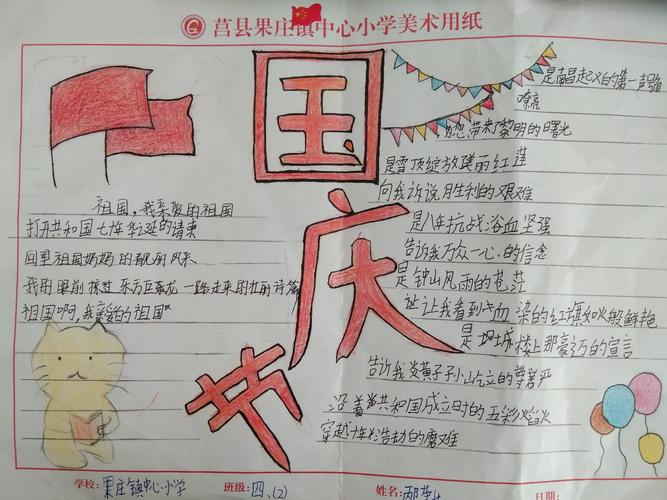 莒县果庄镇中心小学美术用纸
国庆节
祖国,我亲爱的祖国
打开共和国七十年华延的请柬
回望祖国妈妈的靓丽风采
我的眼前掠过东方巨龙一路走来的壮丽诗篇
祖国啊,我亲爱的祖国
是南昌起义的第一声强
嘹亮
为您带来了黎明的曙光
是雪顶绽放璞丽红莲
向我诉说胜利的艰难
是八年抗战浴血坚强
告诉我万众一心的信念
是钟山风雨的苍茫
让我看到热血染的红旗如火般鲜艳
是 城楼上那豪迈的宣言
告诉我炎黄子孙屹立的尊严
沿着共和国成立时的五彩焰火
穿越十年浩劫的磨难
学校:果庄镇中心小学
班级:四、(2)
姓名:
日期: